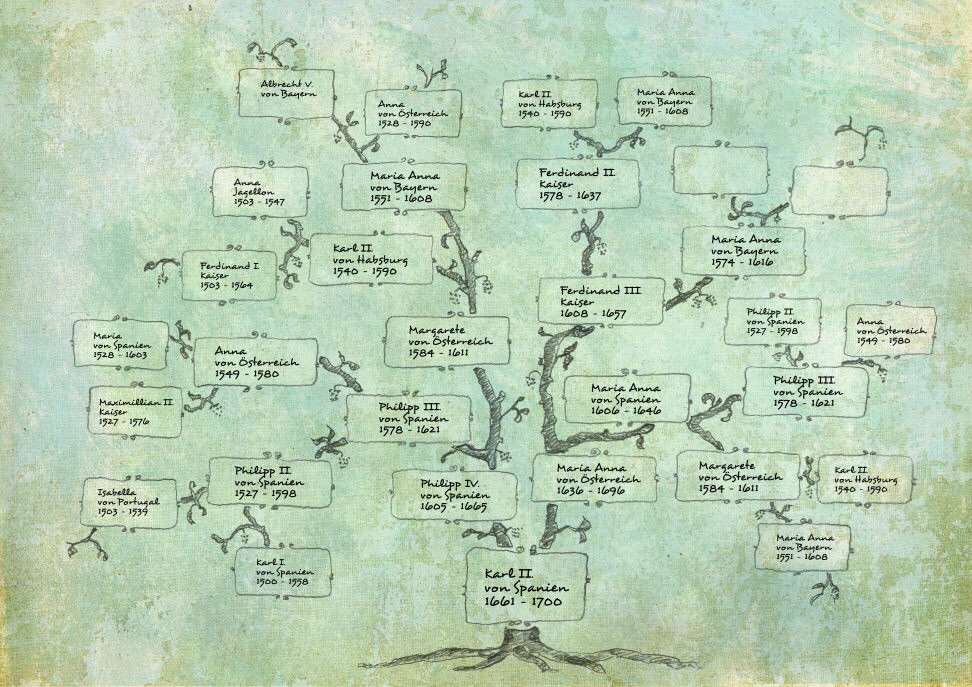 Albrecht V.
von Bayern
Anna
von Österreich
1528 - 1590
Karl II
von Habsburg
1540 - 1590
Maria Anna
von Bayern
1551 - 1608
Anna
Jagellon
1503 - 1547
Maria Anna
von Bayern
1551 - 1608
Ferdinand II
Kaiser
1578 - 1637
Ferdinand I
Kaiser
1503 - 1564
Karl II
von Habsburg
1540 - 1590
Maria Anna
von Bayern
1574 - 1616
Ferdinand III
Kaiser
1608 - 1657
Maria
von Spanien
1528 - 1603
Anna
von Österreich
1549 - 1580
Margarete
von Österreich
1584 - 1611
Philipp II
von Spanien
1527 - 1598
Anna
von Österreich
1549 - 1580
Maximillian II
Kaiser
1527 - 1576
Philipp III
von Spanien
1578 - 1621
Maria Anna
von Spanien
1606 - 1646
Philipp III
von Spanien
1578 - 1621
Isabella
von Portugal
1503 - 1539
Philipp II
von Spanien
1527 - 1598
Philipp IV.
von Spanien
1605 - 1665
Maria Anna
von Österreich
1636 - 1696
Margarete
von Österreich
1584 - 1611
Karl II
von Habsburg
1540 - 1590
Karl I
von Spanien
1500 - 1558
Karl II
von Spanien
1661 - 1700
Maria Anna
von Bayern
1551 - 1608